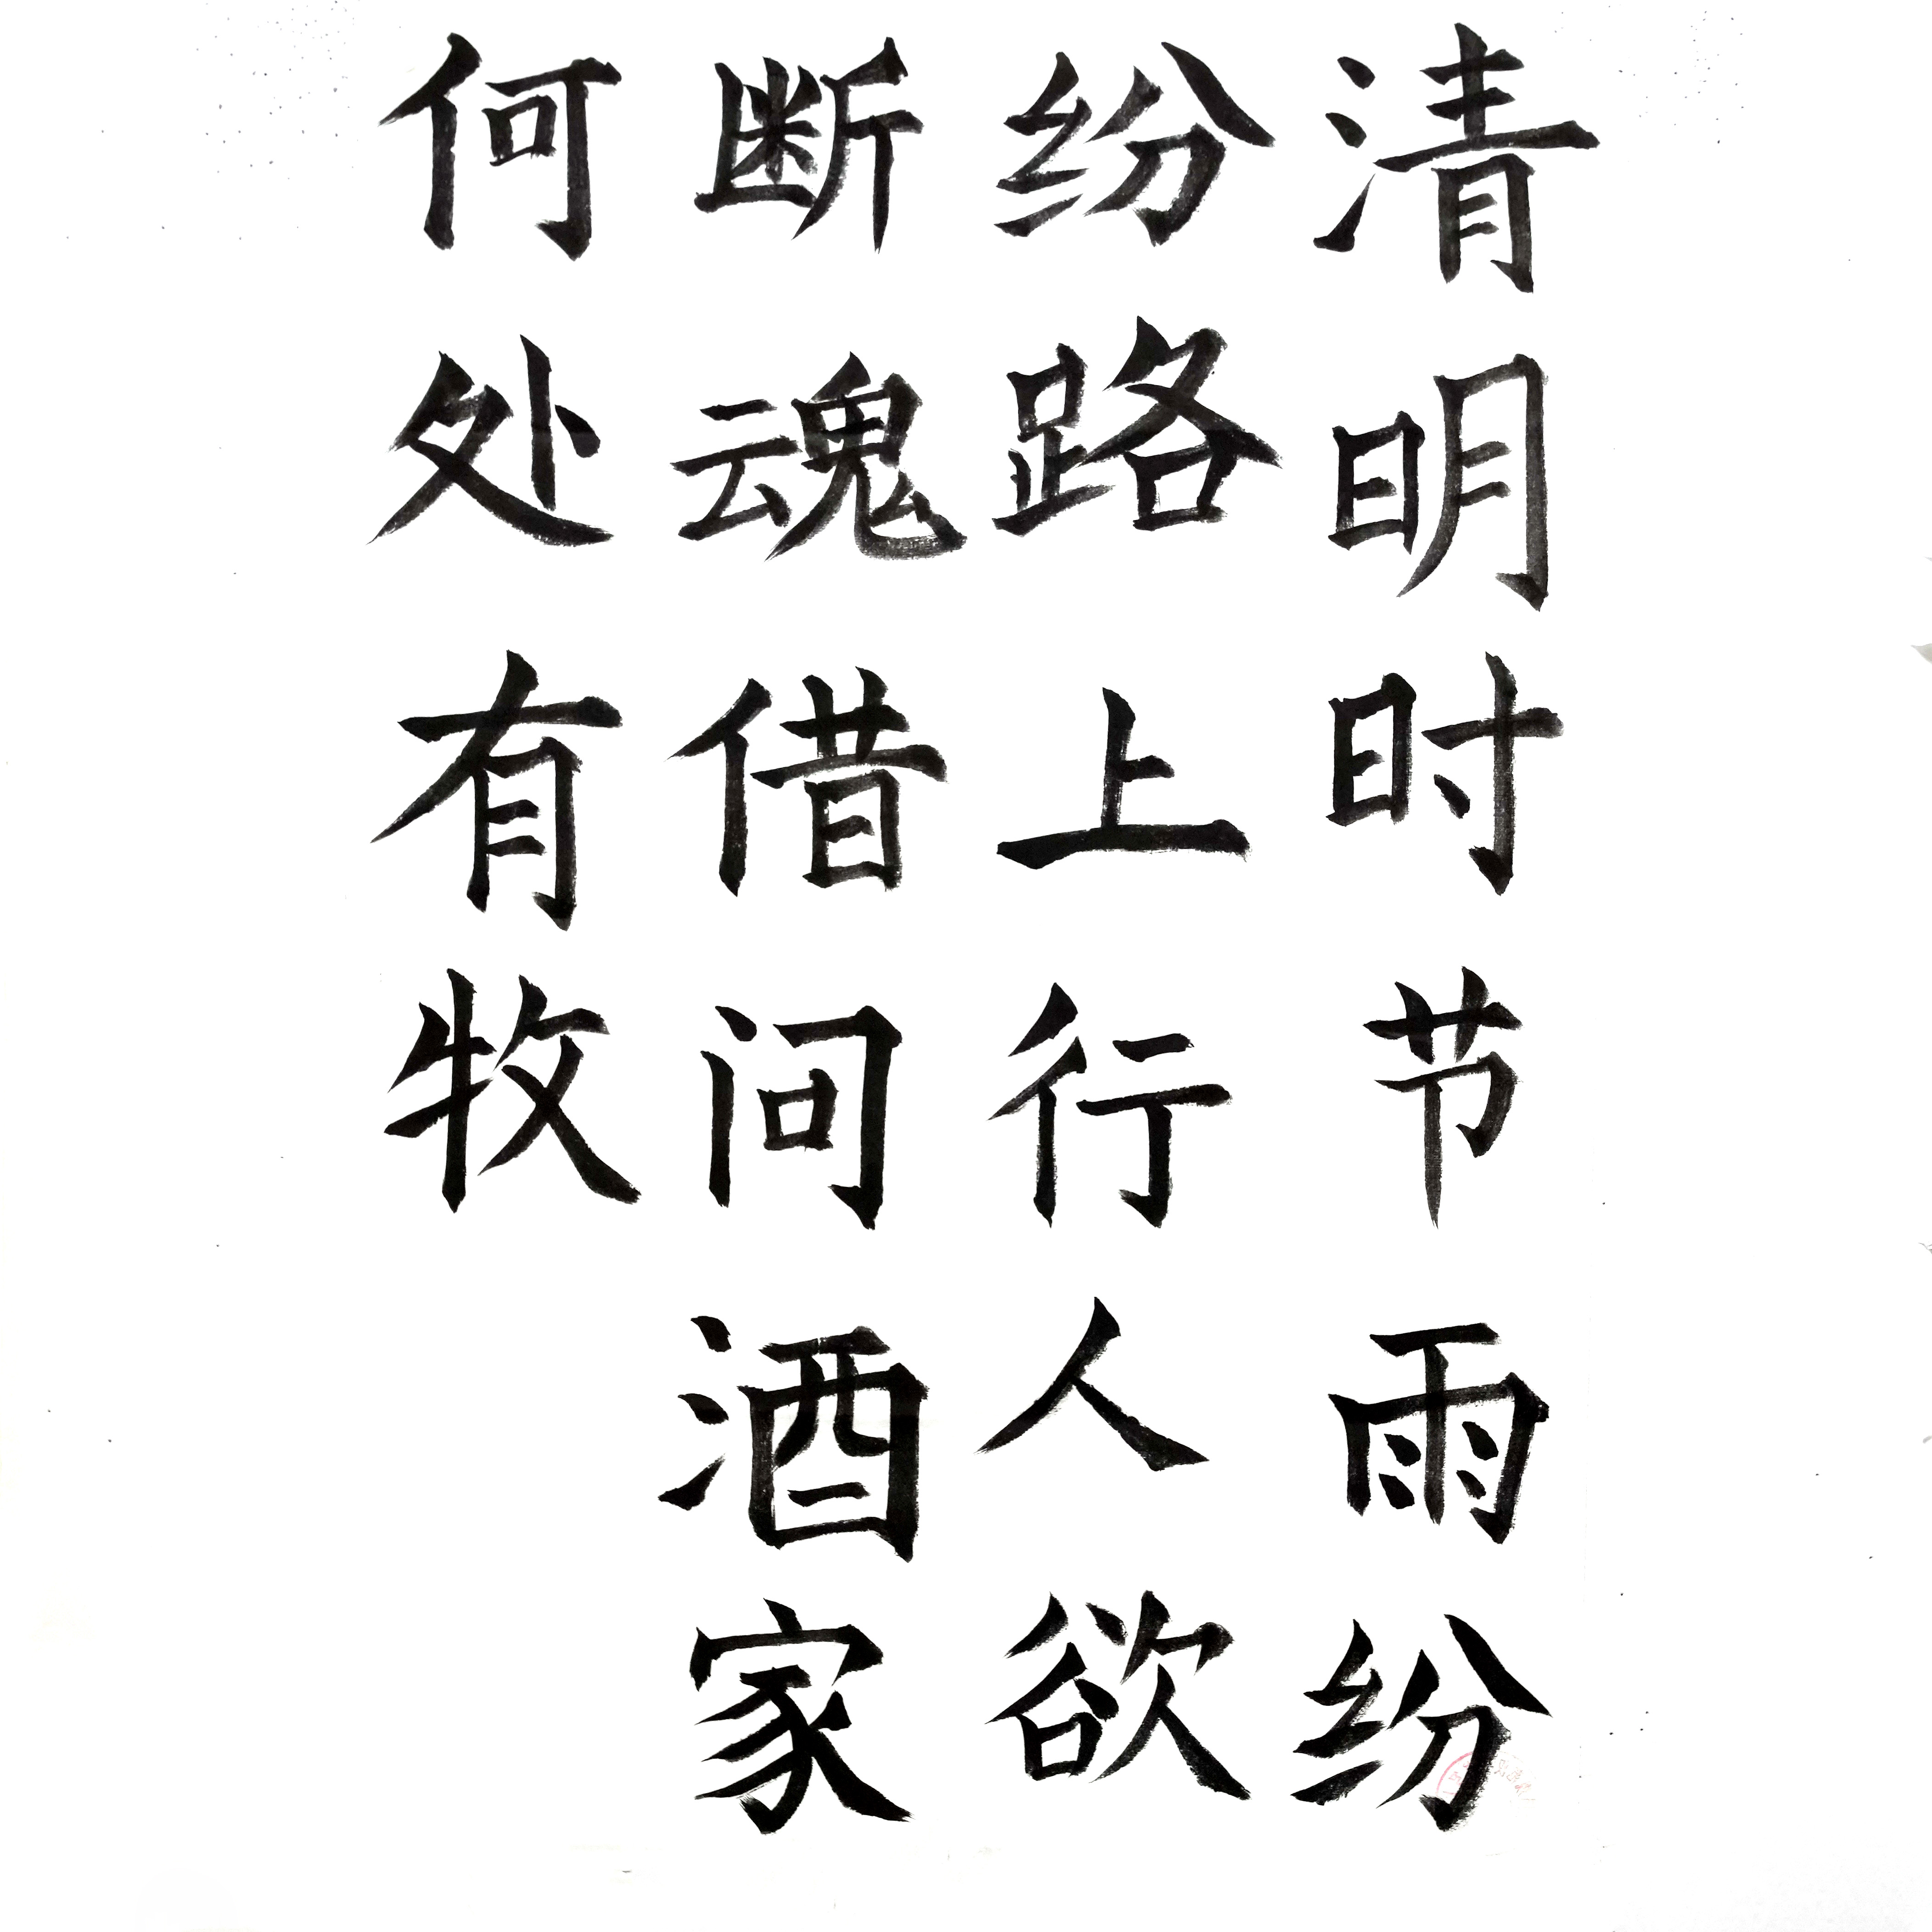 清明时节雨纷
纷路上行人欲
断魂借问酒家
何处有牧